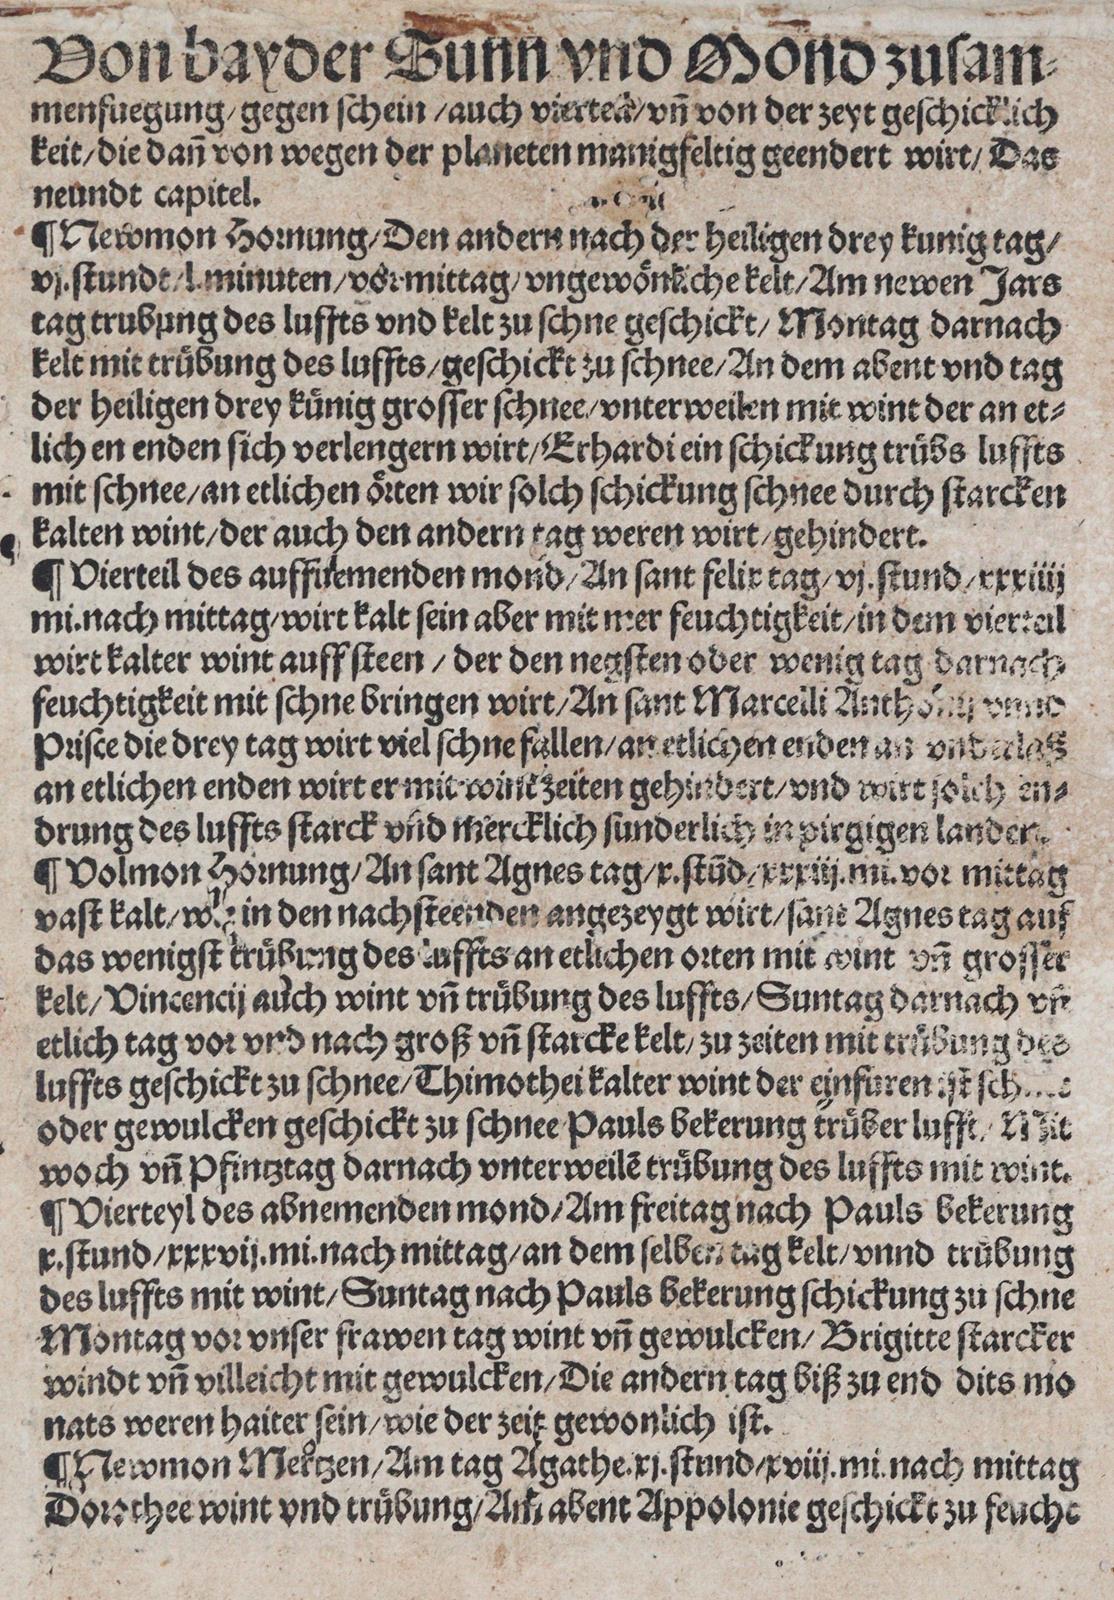 Von bayder Sunn vnd Mond zusam-
menfuegung/ gegen schein /auch viertel/ vn̄ von der zeyt geschicklich
keit/ die dan̄ von wegen der planeten manigfeltig geendert wirt/ Das
neundt capitel.
¶ Newmon Hornung/ Den andern nach der heiligen drey kunig tag/
vj. stundt/ l. minuten/ vor mittag/ vngewönliche kelt/ Am newen Jars
tag trubung des luffts vnd kelt zu schne geschickt/ Montag darnach
kelt mit trübung des luffts/ geschickt zu schnee/ An dem abent vnd tag
der heiligen drey künig grosser schnee/ vnterweilen mit wint der an et-
lich en enden sich verlengern wirt/ Erhardi ein schickung trübs luffts
mit schnee/ an etlichen örten wir solch schickung schnee durch starcken
kalten wint/ der auch den andern tag weren wirt/ gehindert.
¶ Vierteil des auffnemenden mond/ An sant felix tag/ vj. stund/ xxxiiij
mi. nach mittag/ wirt kalt sein aber mit mer feuchtigkeit/ in dem vierteil
wirt kalter wint auff steen / der den negsten oder wenig tag darnach
feuchtigkeit mit schne bringen wirt/ An sant Marcelli Anthonij vnnd
Prisce die drey tag wirt viel schne fallen/ an etlichen enden an vnderlaß
an etlichen enden wirt er mit wint zeiten gehindert/ vnd wirt solch en-
drung des luffts starck vnd mercklich sunderlich in pirgigen landen.
¶ Volmon Hornung/ An sant Agnes tag/ x. stūd/ xxxiij. mi. vor mittag
vast kalt/ in den nachsteenden angezeygt wirt/ sant Agnes tag auf
das wenigst trübung des luffts an etlichen orten mit wint vn̄ grosser
kelt/ Vincencij auch wint vn̄ trübung des luffts/ Suntag darnach vn̄
etlich tag vor vnd nach groß vn̄ starcke kelt/ zu zeiten mit trübung des
luffts geschickt zu schnee/ Thimothei kalter wint der einfuren ist
oder gewulcken geschickt zu schnee Pauls bekerung trüber lufft/ Mit
woch vn̄ Pfintztag darnach vnterweilē trübung des luffts mit wint.
¶ Vierteyl des abnemenden mond/ Am freitag nach Pauls bekerung
x. stund/ xxxvij. mi. nach mittag/ an dem selben tag kelt/ vnnd trübung
des luffts mit wint/ Suntag nach Pauls bekerung schickung zu schne
Montag vor vnser frawen tag wint vn̄ gewulcken/ Brigitte starcker
windt vn̄ villeicht mit gewulcken/ Die andern tag biß zu end dits mo
nats weren haiter sein/ wie der zeit gewonlich ist.
¶ Newmon Mertzen/ Am tag Agathe. xj. stund/ xviij. mi. nach mittag
Dorothee wint vnd trübung/ Am abent Appolonie geschickt zu feucht